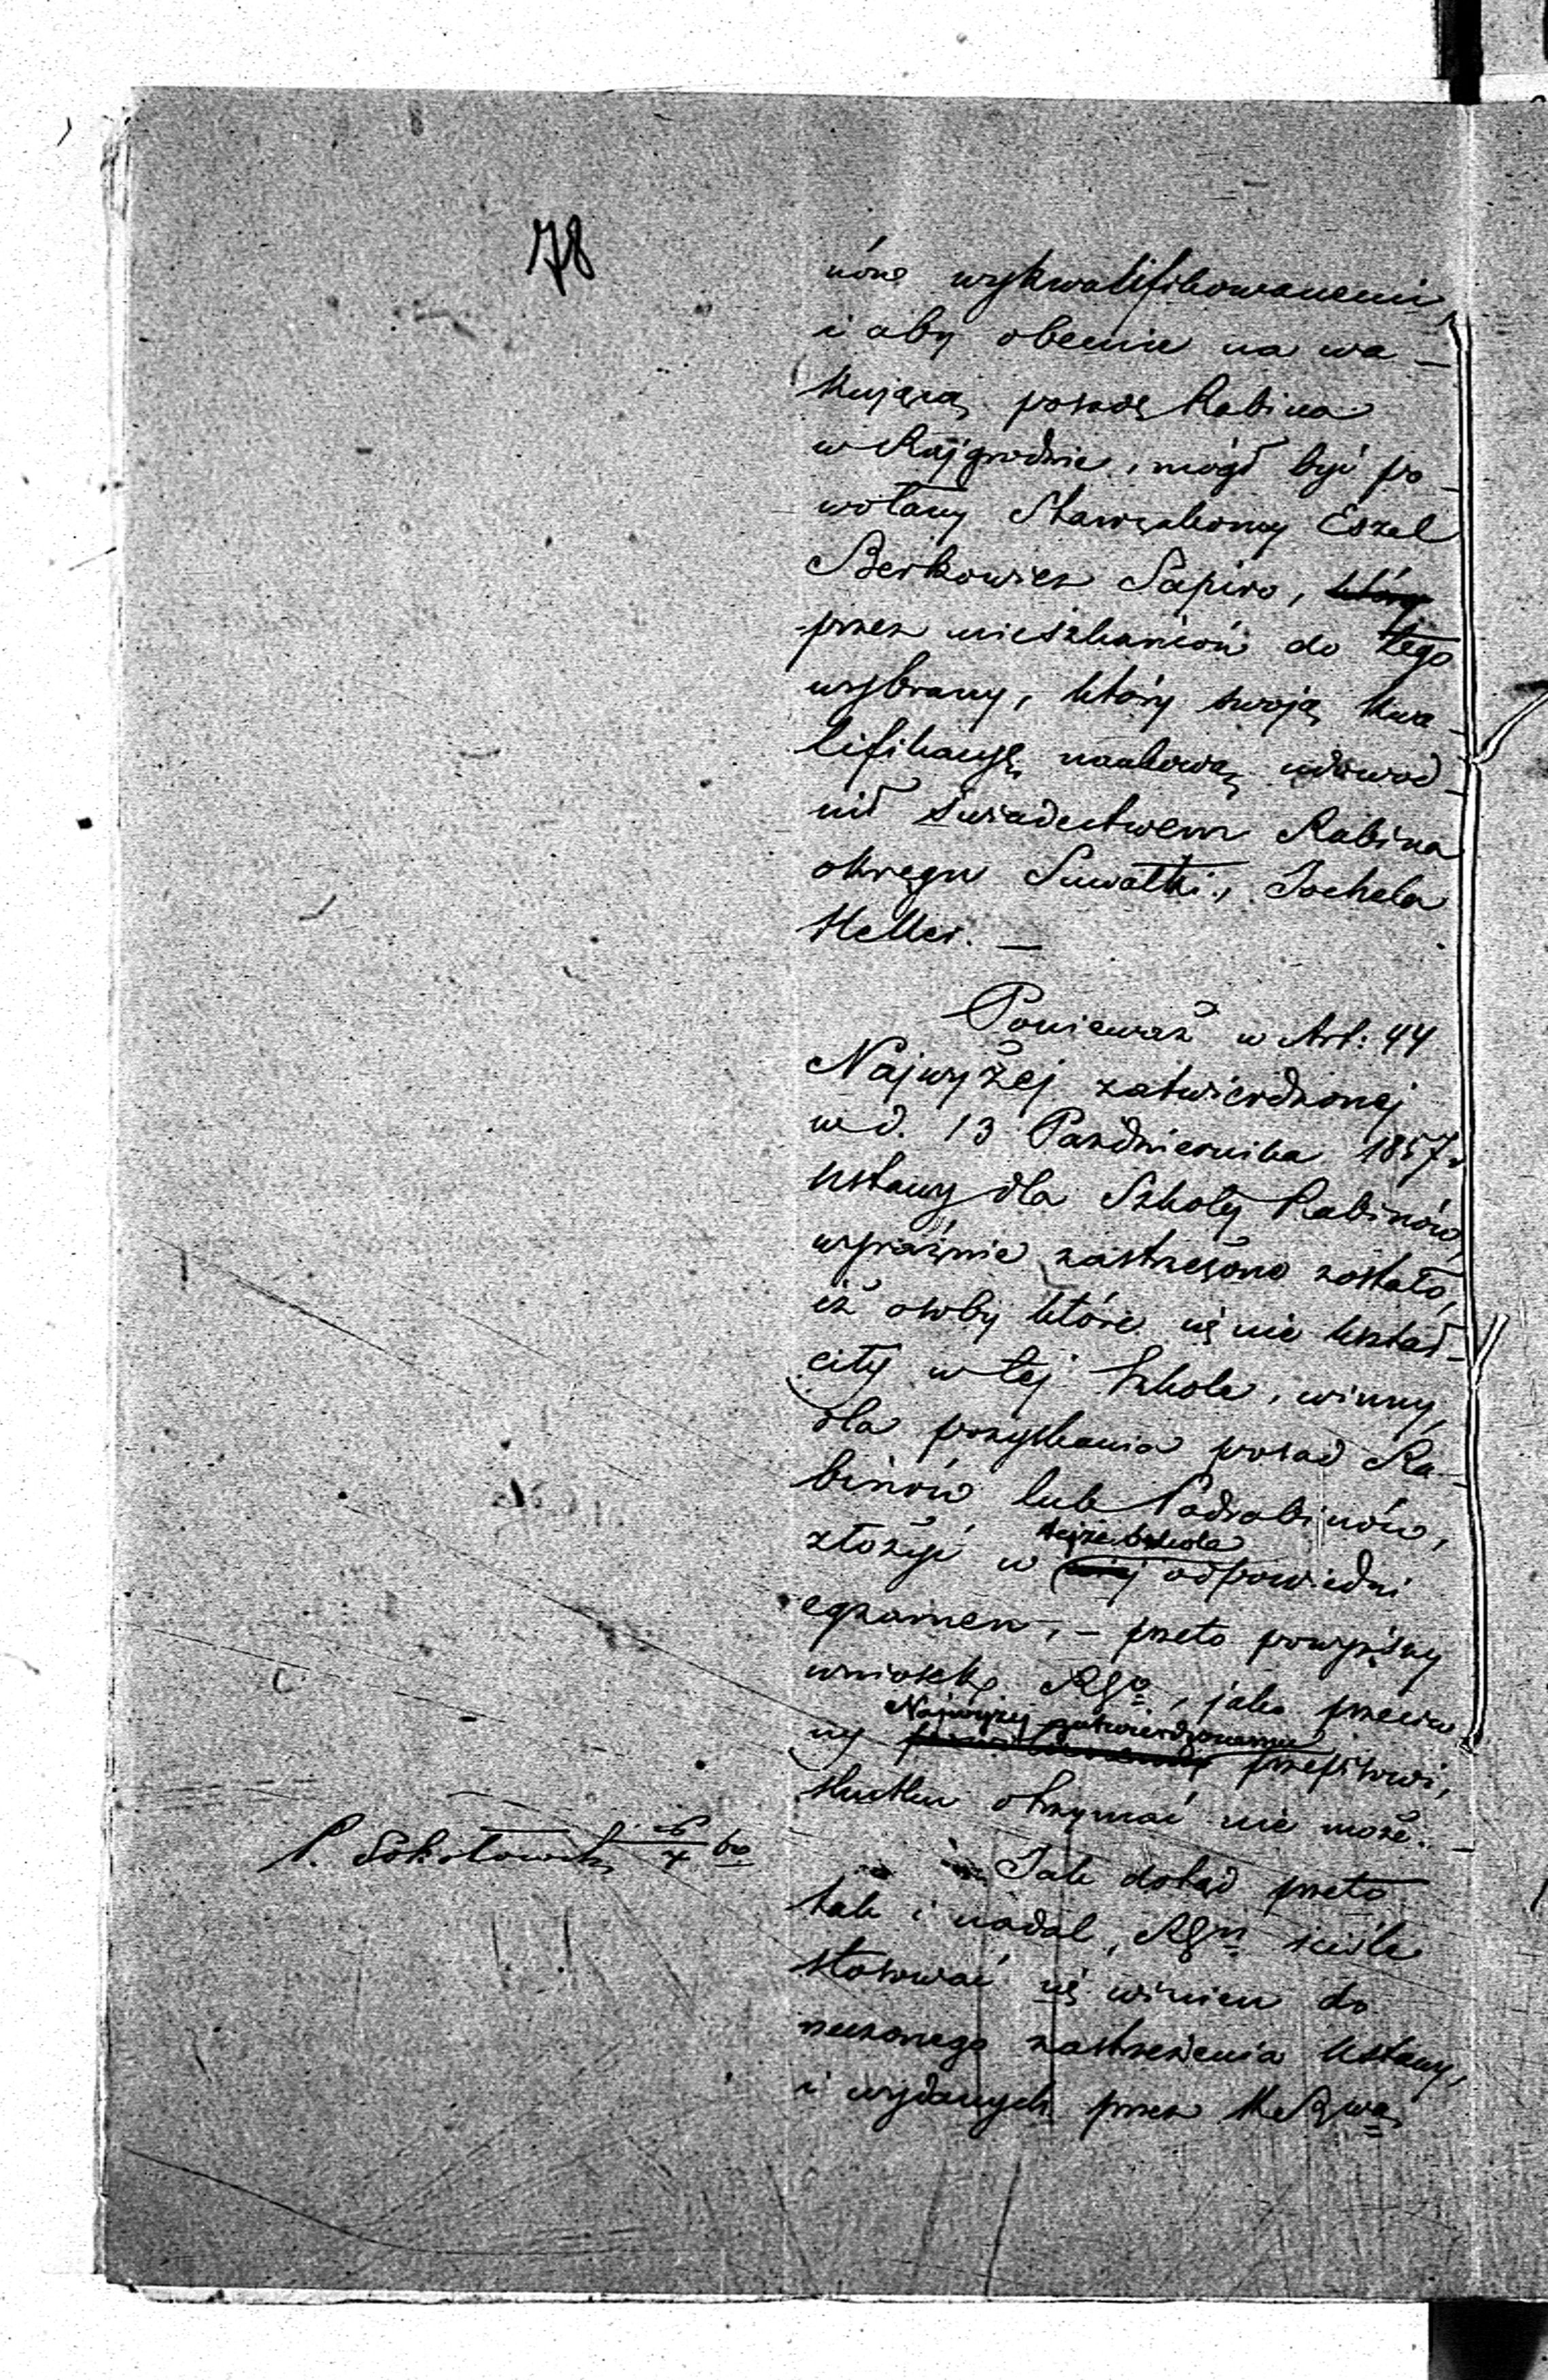 78
nów wykwalifikowanemi,
i aby obecnie na wa-
kującą posadę Rabina
w Rajgrodzie, mógł być po-
wołany Starozakonny Eszel
Berkowicz Sapiro, który
przez mieszkańców do tego
wybrany, który swoją kwa-
lifikacyę naukową udowod-
nił świadectwem Rabina
okręgu Suwałki, Jochela
Heller. —
Ponieważ w Art: 44
Najwyżej zatwierdzonej
w d. 13 Października 1857 r.
Ustawy dla Szkoły Rabinów,
wyraźnie zastrzeżono zostało,
iż osoby które się nie kształ-
ciły w tej Szkole, winny,
dla pozyskania posad Ra-
binów lub Podrabinów,
tejże Szkole
złożyć w niej odpowiedni
egzamen, – przeto powyższy
wniosek RGo, jako przeciw
Najwyżej zatwierdzonemu
ny przepisowi,
skutku otrzymać nie może. –
P. Sokołowski
Jak dotąd przeto
tak i nadal, RGn ściśle
stosować się winien do
rzeczonego zastrzeżenia Ustawy,
i wydanych przez KRwą